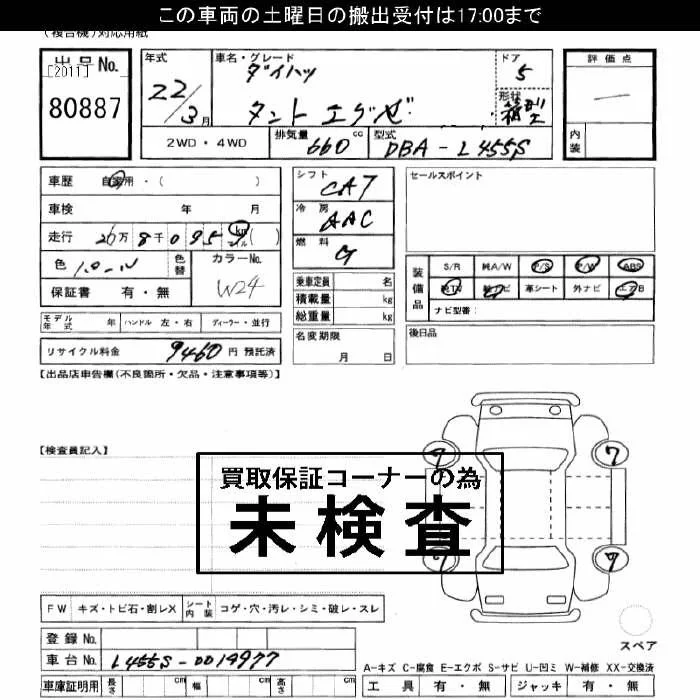 この車両の土曜日の搬出受付は17:00まで
(複合機)対応用紙
出品No.
[2011]
80887
年式 22/3月
車名・グレード ダイハツ
タント エグゼ
ドア 5
形状 箱型
評価点 —
内装
2WD・4WD
排気量 660 cc
型式 DBA-L455S
車歴 自家用・( )
車検 年 月
走行 2 万 8 千 0 9 5 9 km マイル ( )
色 パール 色替
カラーNo. W24
保証書 有・無
シフト CAT
冷房 AAC
燃料 G
乗車定員 名
積載量 kg
総重量 kg
セールスポイント
装備品
S/R 純A/W P/S P/W ABS
純TV 純ナビ 革シート 外ナビ エアB
ナビ型番:
モデル年式 年 ハンドル 左・右 ディーラー・並行
名変期限 月 日
後日品
リサイクル料金 9460 円 預託済
【出品店申告欄(不良箇所・欠品・注意事項等)】
【検査員記入】
買取保証コーナーの為
未検査
7 7
7 7
FW キズ・トビ石・割レX シート内装 コゲ・穴・汚レ・シミ・破レ・スレ
登録No.
車台No. L455S-0014977
スペア
A-キズ C-腐食 E-エクボ S-サビ U-凹ミ W-補修 XX-交換済
車庫証明用 長さ cm 幅 cm 高さ cm
工具 有・無 ジャッキ 有・無